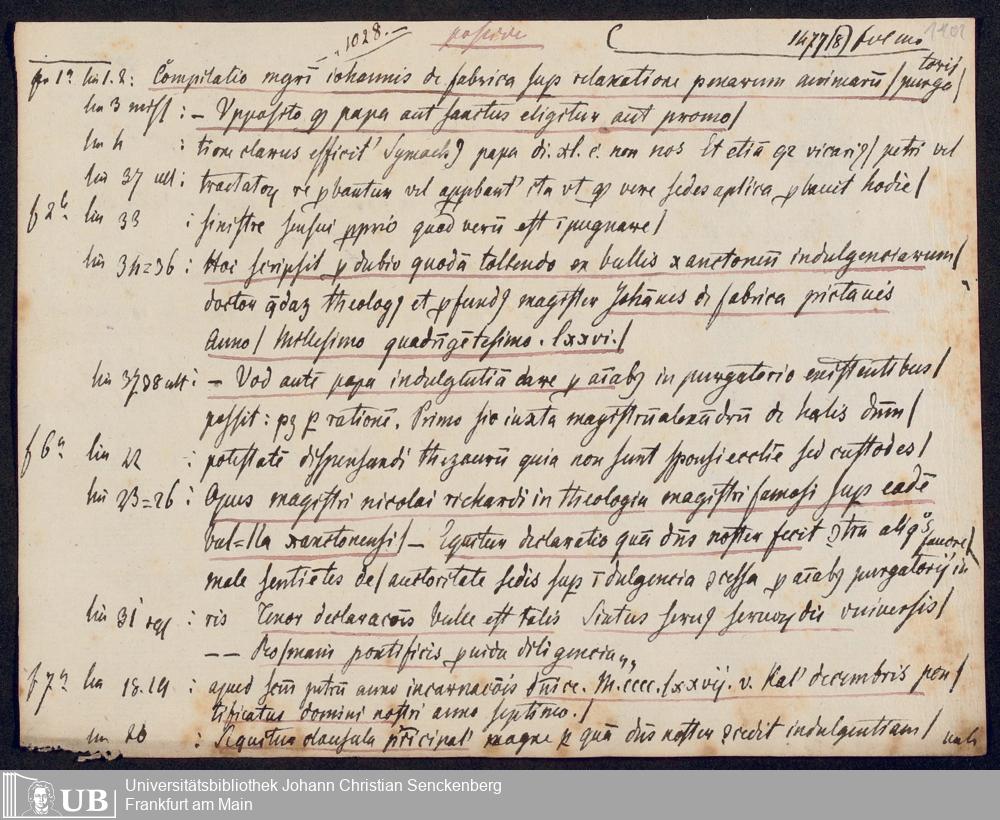 1028. posside 1477(8) 1202
fo 1a lin 1.2: Compilatio mgri iohannis de fabrica sup relaxatione penarum animarū / purga / torij
lin 3 : – Upposito qꝫ papa aut sanctus eligitur aut promo /
lin 4 : tione clarus efficit' Symachꝰ papa di. xl. c. non nos Et etiā qꝛ vicariꝰ / petri vel
lin 37 ult : vt qꝫ vere sedes aplica hodie /
f 2b lin 33 : sinistre sensui ꝓprio quod verū est īpugnare /
lin 34=36 : Hoc scripsit ꝓ dubio quodā tollendo ex bullis xanctonen̄ indulgenciarum /
doctor q̄daꝫ theologꝰ et ꝓfundꝰ magister Johānes de fabrica pictauēs
Anno / Millesimo quadrīgētesimo . lxxvi. /
lin 37 38 ult : – Vod autē papa indulgentiā dare ꝓ aīabꝰ in purgatorio existentibus /
possit : pꝫ rationē. Primo sic iuxta magistrū alexādrū de hales dn̄m /
f 6a lin 22 : potestatē dispensandi thezaurū quia non sunt sponsi ecclie sed custodes /
lin 23=26 : Opus magistri nicolai richardi in theologia magistri famosi sup eadē
bul=lla xanctonensi / – Equitur declaratio quā dn̄s noster fecit ꝯtra aliqͦs
male sentiētes de / auctoritate sedis sup īdulgencia ꝯcessa ꝓ aīabꝰ purgatorij in
lin 31 : ris Tenor declaracōis bulle est talis Sixtus seruꝰ seruoꝝ dei vniuersis /
– – Romani pontificis ꝓuida diligencia,,
f 7a lin 18.19 : apud scm̄ petrū anno incarnacōis dn̄ice. M.cccc.lxxvij. v. Kal' decembris pon /
tificatus domini nostri anno septimo. /
lin 20 : Sequitur clausula prīcipal' magne ꝑ quā dn̄s noster ꝯcedit indulgentiam /
UB Universitätsbibliothek Johann Christian Senckenberg
Frankfurt am Main